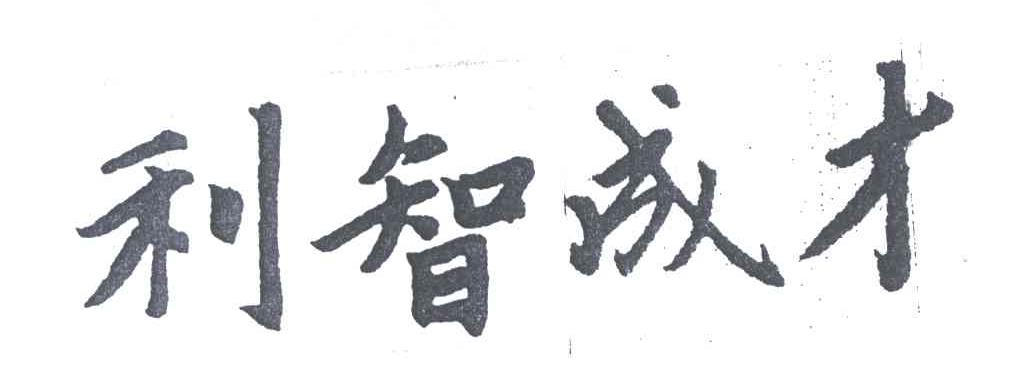 利智成才